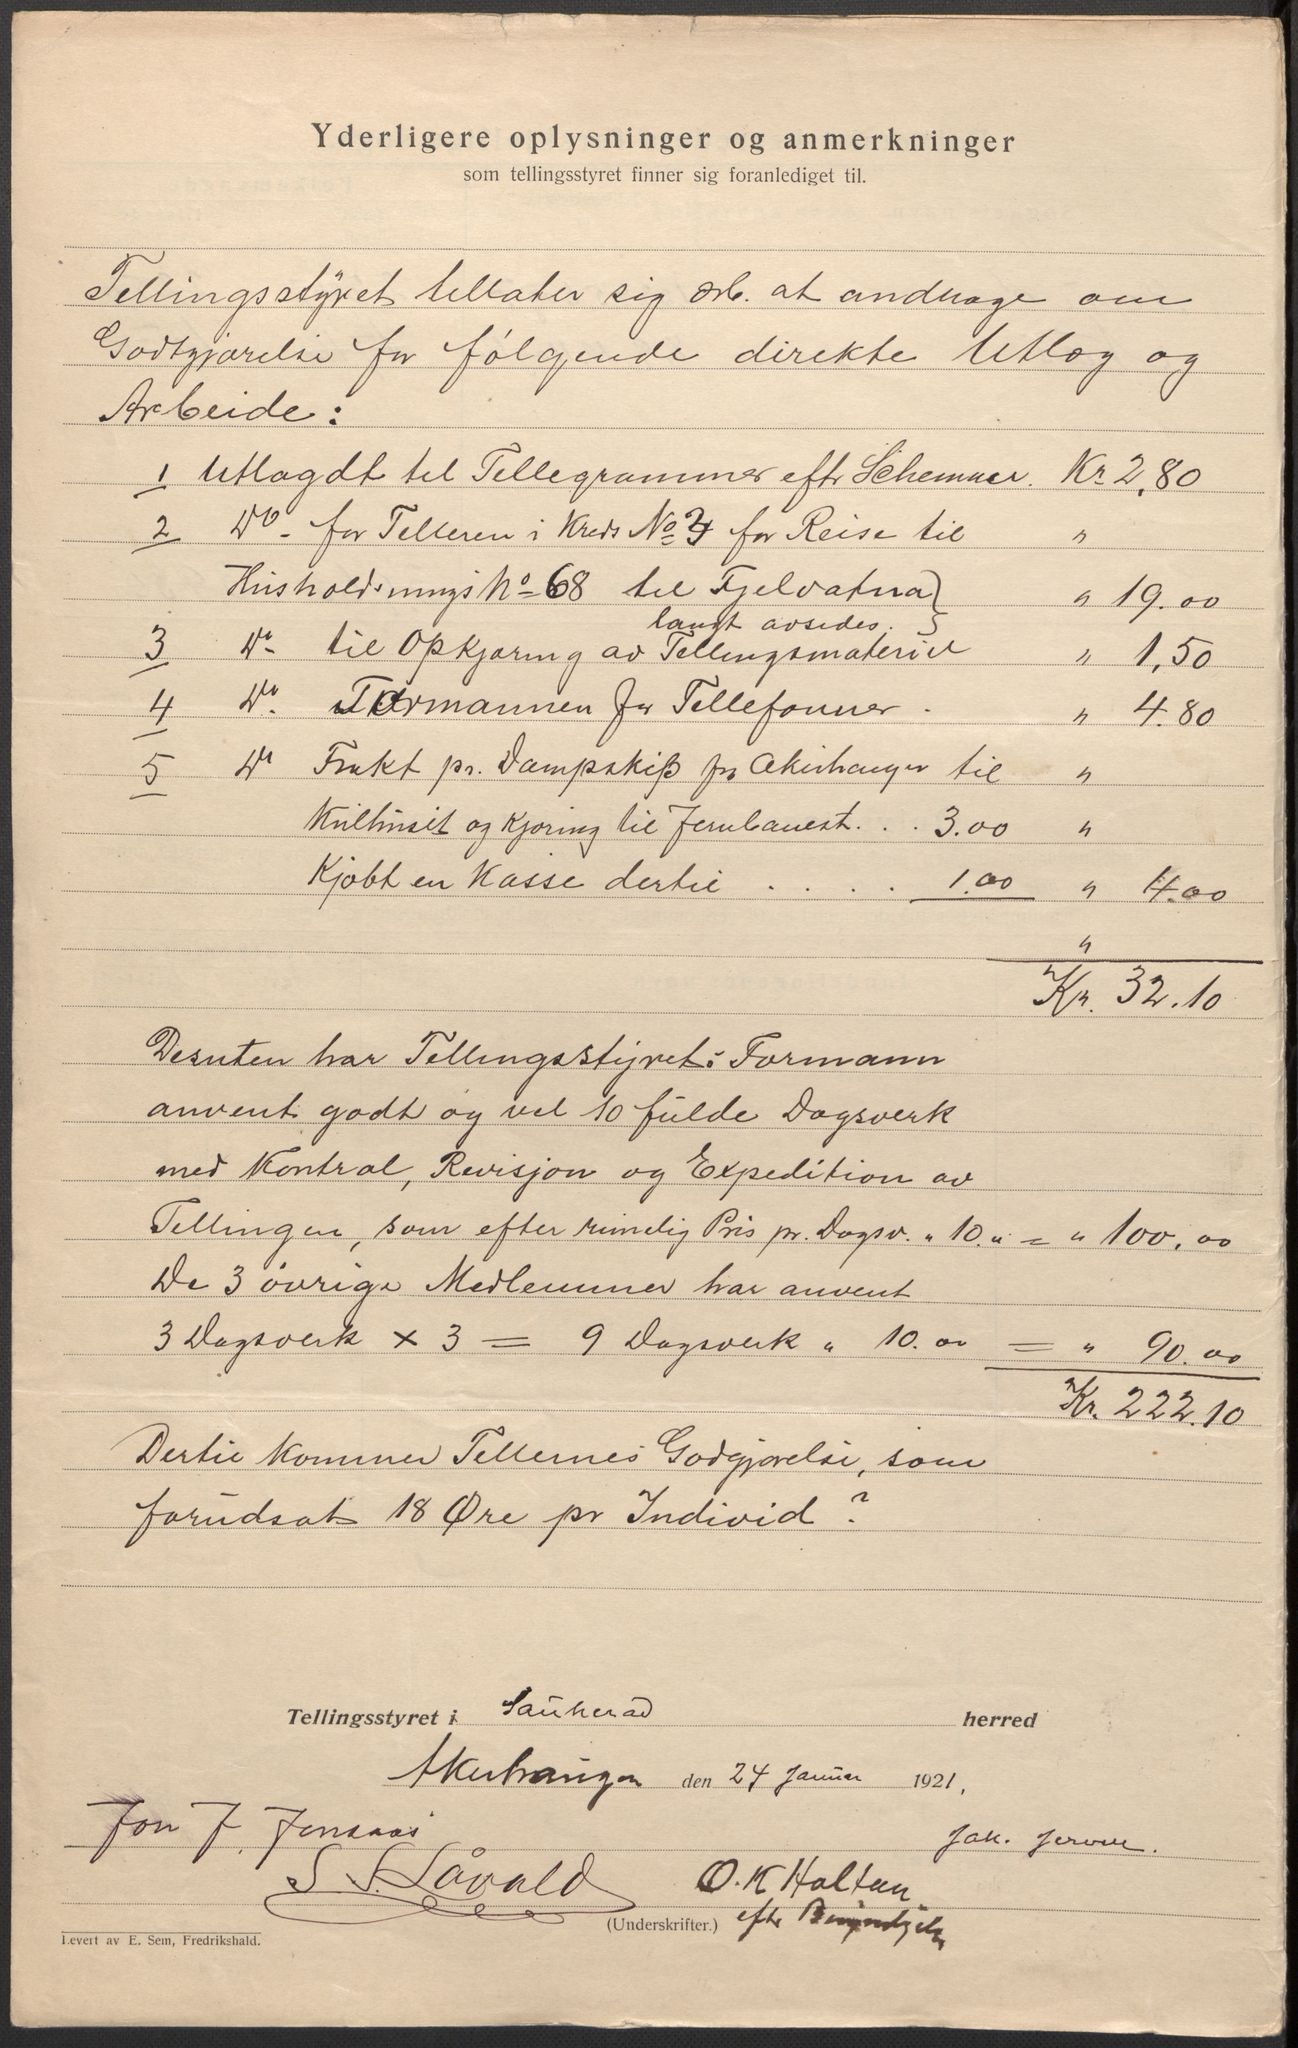 Yderligere oplysninger og anmerkninger
som tellingsstyret finner sig foranlediget til.
Tellingsstyret tillater sig ærb. at andrage om
Godtgjørelse for følgende direkte Utlæg og
Arbeide:
1 Utlagdt til Tellegrammer efter Schemaer. Kr 2,80
2 Do - for Telleren i Kreds No 3 for Reise til "
Husholdningsno 68 til Fjelvatna } " 19.00
langt avsides.
3 Do til Opkjøring av Tellingsmateriel " 1,50
4 Do. Formannen for Tellefonner. " 4.80
5 Do Frakt pr. Dampskib fra Akerhaugen til "
og kjøring til Jernbanest. . . 3.00 "
Kjøbt en Kasse dertil . . . . 1.00 " 4.00
"
Kr. 32.10
Desuten har Tellingsstyrets Formann
anvent godt og vel 10 fulde Dagsverk
med Kontrol, Revisjon og Expedition av
Tellingen, som efter rimelig Pris pr. Dagsv. " 10." = " 100.00
De 3 øvrige Medlemmer har anvent
3 Dagsverk × 3 = 9 Dagsverk " 10.00 = " 90.00
Kr. 222.10
Dertil kommer Tellernes Godgjørelse, som
forudsat 18 Øre pr Individ?
Tellingsstyret i Sauherad herred
Akerhaugen den 24 Januar 1921.
Jon J. Jensaas Jak.
S. S. Såvald O. K Holtan
(Underskrifter.) efter
Levert av E. Sem, Fredrikshald.